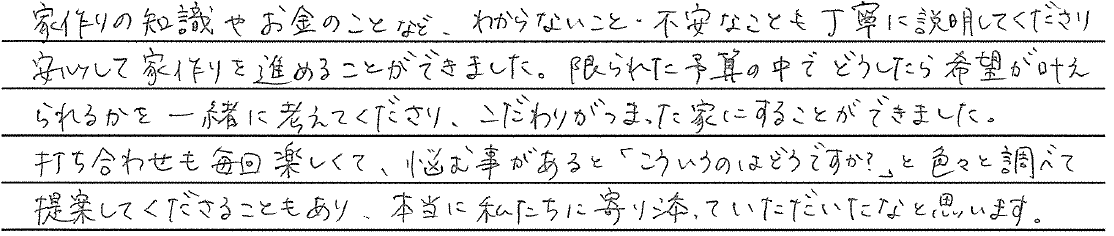 家作りの知識やお金のことなど、わからないこと・不安なことも丁寧に説明してくださり
安心して家作りを進めることができました。限られた予算の中でどうしたら希望が叶え
られるかを一緒に考えてくださり、こだわりがつまった家にすることができました。
打ち合わせも毎回楽しくて、悩む事があると「こういうのはどうですか?」と色々と調べて
提案してくださることもあり、本当に私たちに寄り添っていただいたなと思います。